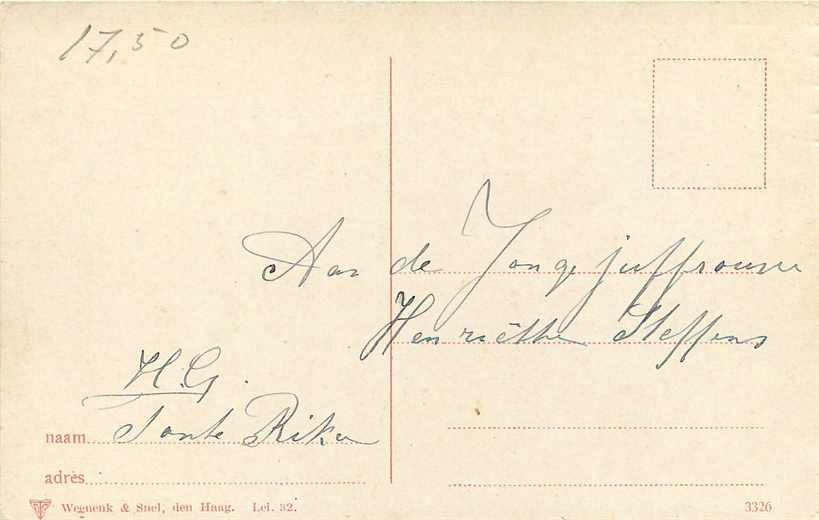 17,50
Aan de Jonge juffrouw
Henriëtte Steffens
H.G.
naam Tante Rika
adres
Wegnenk & Snel, den Haag. Lel. 32.
3326